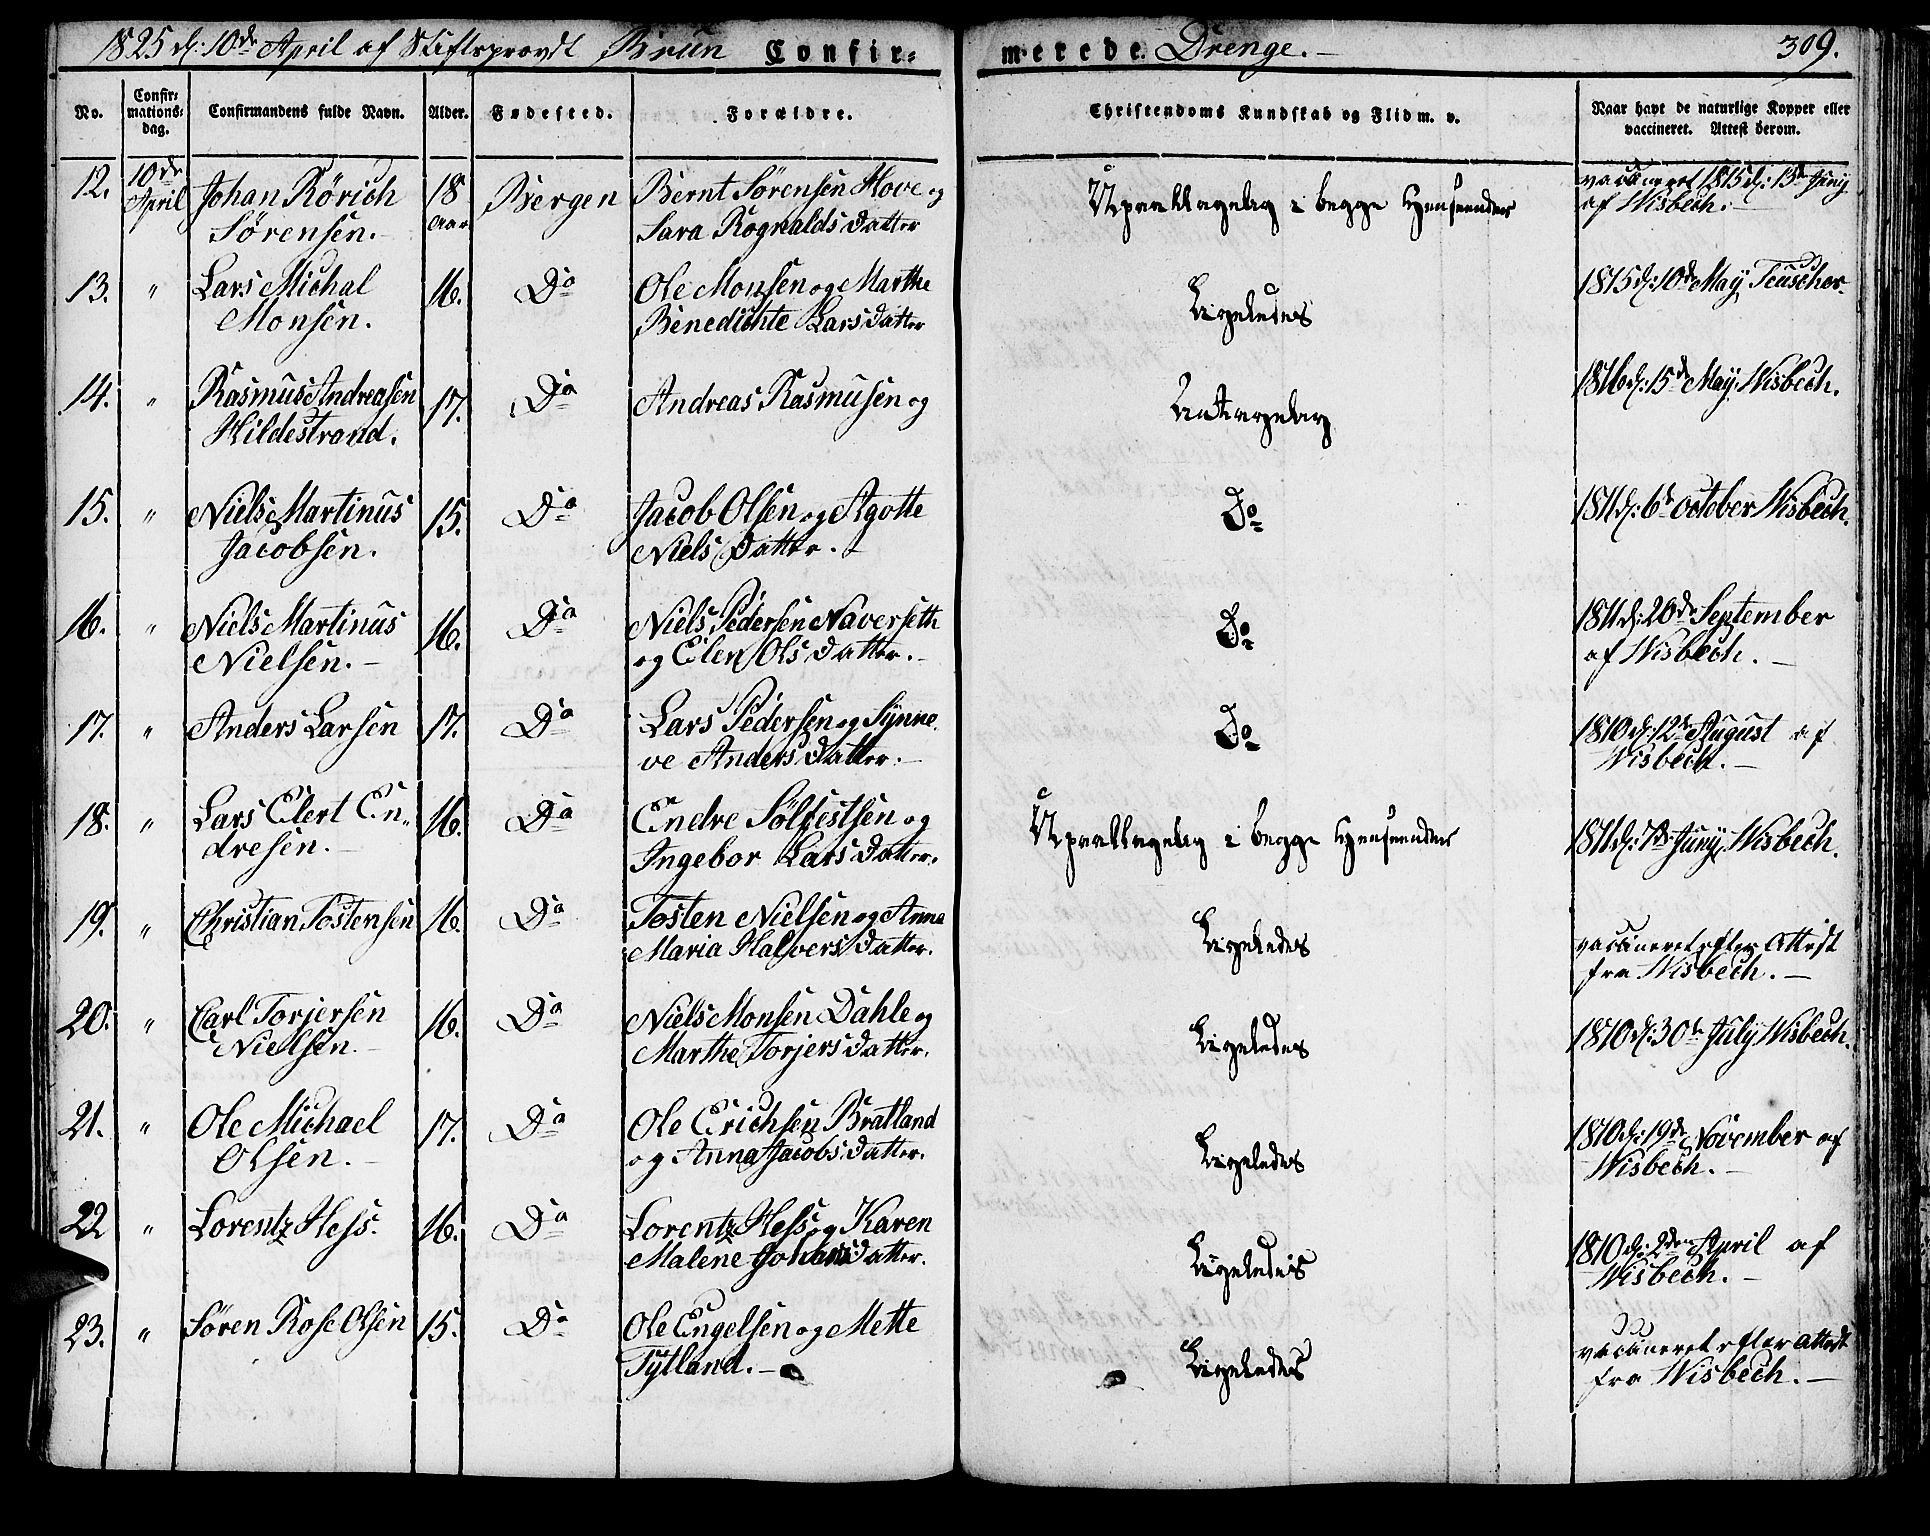 1825 d: 10de April af Stiftsprovst Brun Confir-
merede Drenge. 309.
No. Confir-mations-dag. Confirmandens fulde Navn. Alder. Fødested. Forældre. Christendoms Kundskab og Flid m. v. Naar havt de naturlige Kopper eller vaccineret. Attest derom.
12. 10de April Johan Rörich 18 Aar Bergen Bernt Sørensen Hove og Upaaklagelig i begge Henseender vaccineret 1815 d: 13de Juny
Sørensen. Sara Rognealds Datter af Wisbech.
13. " Lars Michal 16. Do Ole Monsen og Marthe Ligeledes 1815 d: 10de May Teuscher
Monsen. Benedichte Lars Datter
14. " Rasmus Andreasen 17. Do Andreas Rasmusen og 1816 d: 15de May, Wisbech.
Hildestrand.
15. " Niels Martinus 15. Do Jacob Olsen og Agotte Do 1811 d: 6te October Wisbech.
Jacobsen. Niels Datter.
16. " Niels Martinus 16. Do Niels Pedersen Naverseth Do 1811 d: 20de September
Nielsen. og Elen Ols Datter. af Wisbech.
17. " Anders Larsen 17. Do Lars Pedersen og Synne- Do 1810 d: 12te August af
ve Anders Datter. Wisbech.
18. " Lars Elert En- 16. Do Endre Sølfestsen og Upaaklagelig i begge Henseender 1811 d: 7de Juny, Wisbech.
dresen. Ingebor Lars Datter.
19. " Christian Tostensen 16. Do Tosten Nielsen og Anna Ligeledes vaccineret efter Attest
Maria Halvors Datter. fra Wisbech.
20. " Carl Torjersen 16. Do Niels Monsen Dahle og Ligeledes 1810 d: 30te July Wisbech.
Nielsen. Marthe Torjers Datter.
21. " Ole Michael 17. Do Ole Erichsen Bratland Ligeledes 1810 d: 19de November af
Olsen. og Anna Jacobs Datter. Wisbech.
22 " Lorentz Hess. 16. Do Lorentz Hess og Karen Ligeledes 1810 d: 2den April af
Malene Johans Datter. Wisbech.
23. " Søren Rose Olsen 15. Do Ole Engelsen og Mette Ligeledes vaccineret efter Attest
Tytland. fra Wisbech.